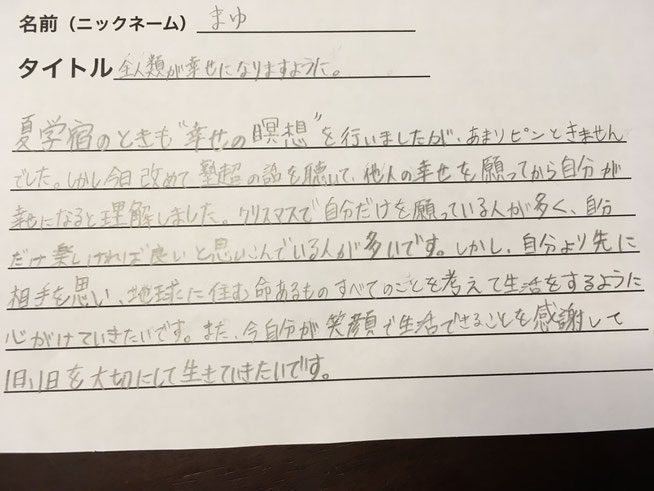 名前（ニックネーム） まゆ
タイトル 全人類が幸せになりますように。
夏学宿のときも"幸せの瞑想"を行いましたが、あまりピンときません
でした。しかし今日改めて塾超の話を聴いて、他人の幸せを願ってから自分が
幸せになると理解しました。クリスマスで自分だけを願っている人が多く、自分
だけ楽しければ良いと思いこんでいる人が多いです。しかし、自分より先に
相手を思い、地球に住む命あるものすべてのことを考えて生活をするように
心がけていきたいです。また、今自分が笑顔で生活できることを感謝して
1日1日を大切にして生きていきたいです。